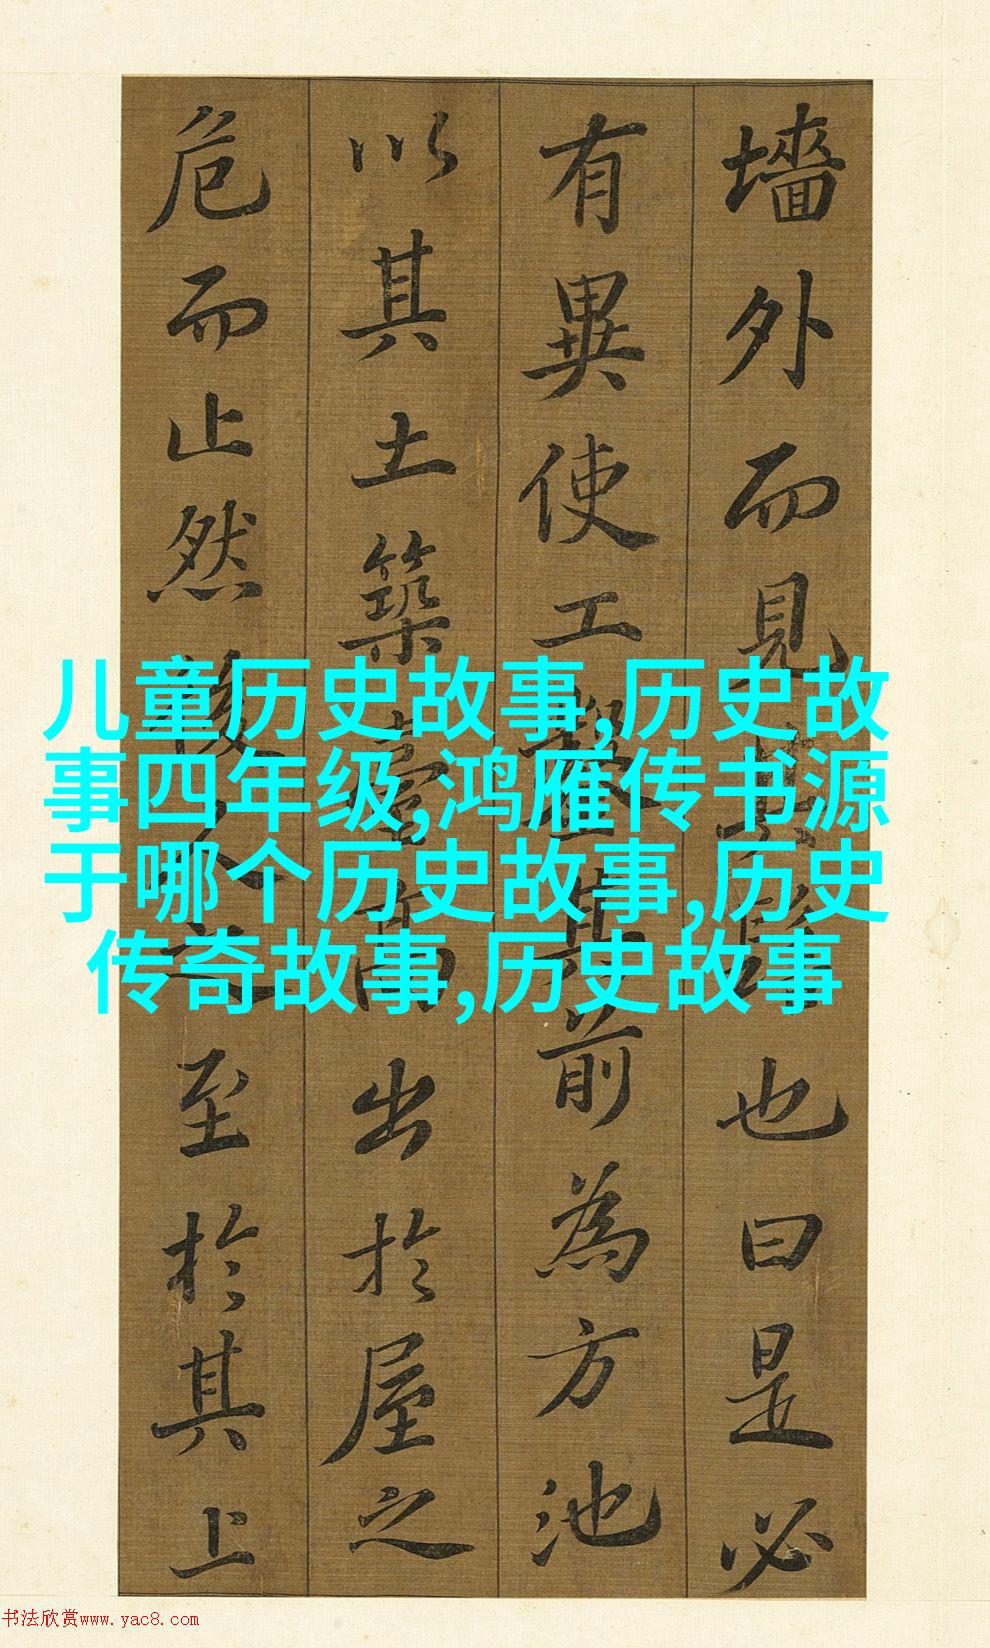 墻外而見其髻也曰是必
有異使工鑿其前為方池
以其土築臺高出於屋之
危而止然後人之至於其上
儿童历史故事,历史故
事四年级,鸿雁传书源
于哪个历史故事,历史
传奇故事,历史故事
书法欣赏www.yac8.com